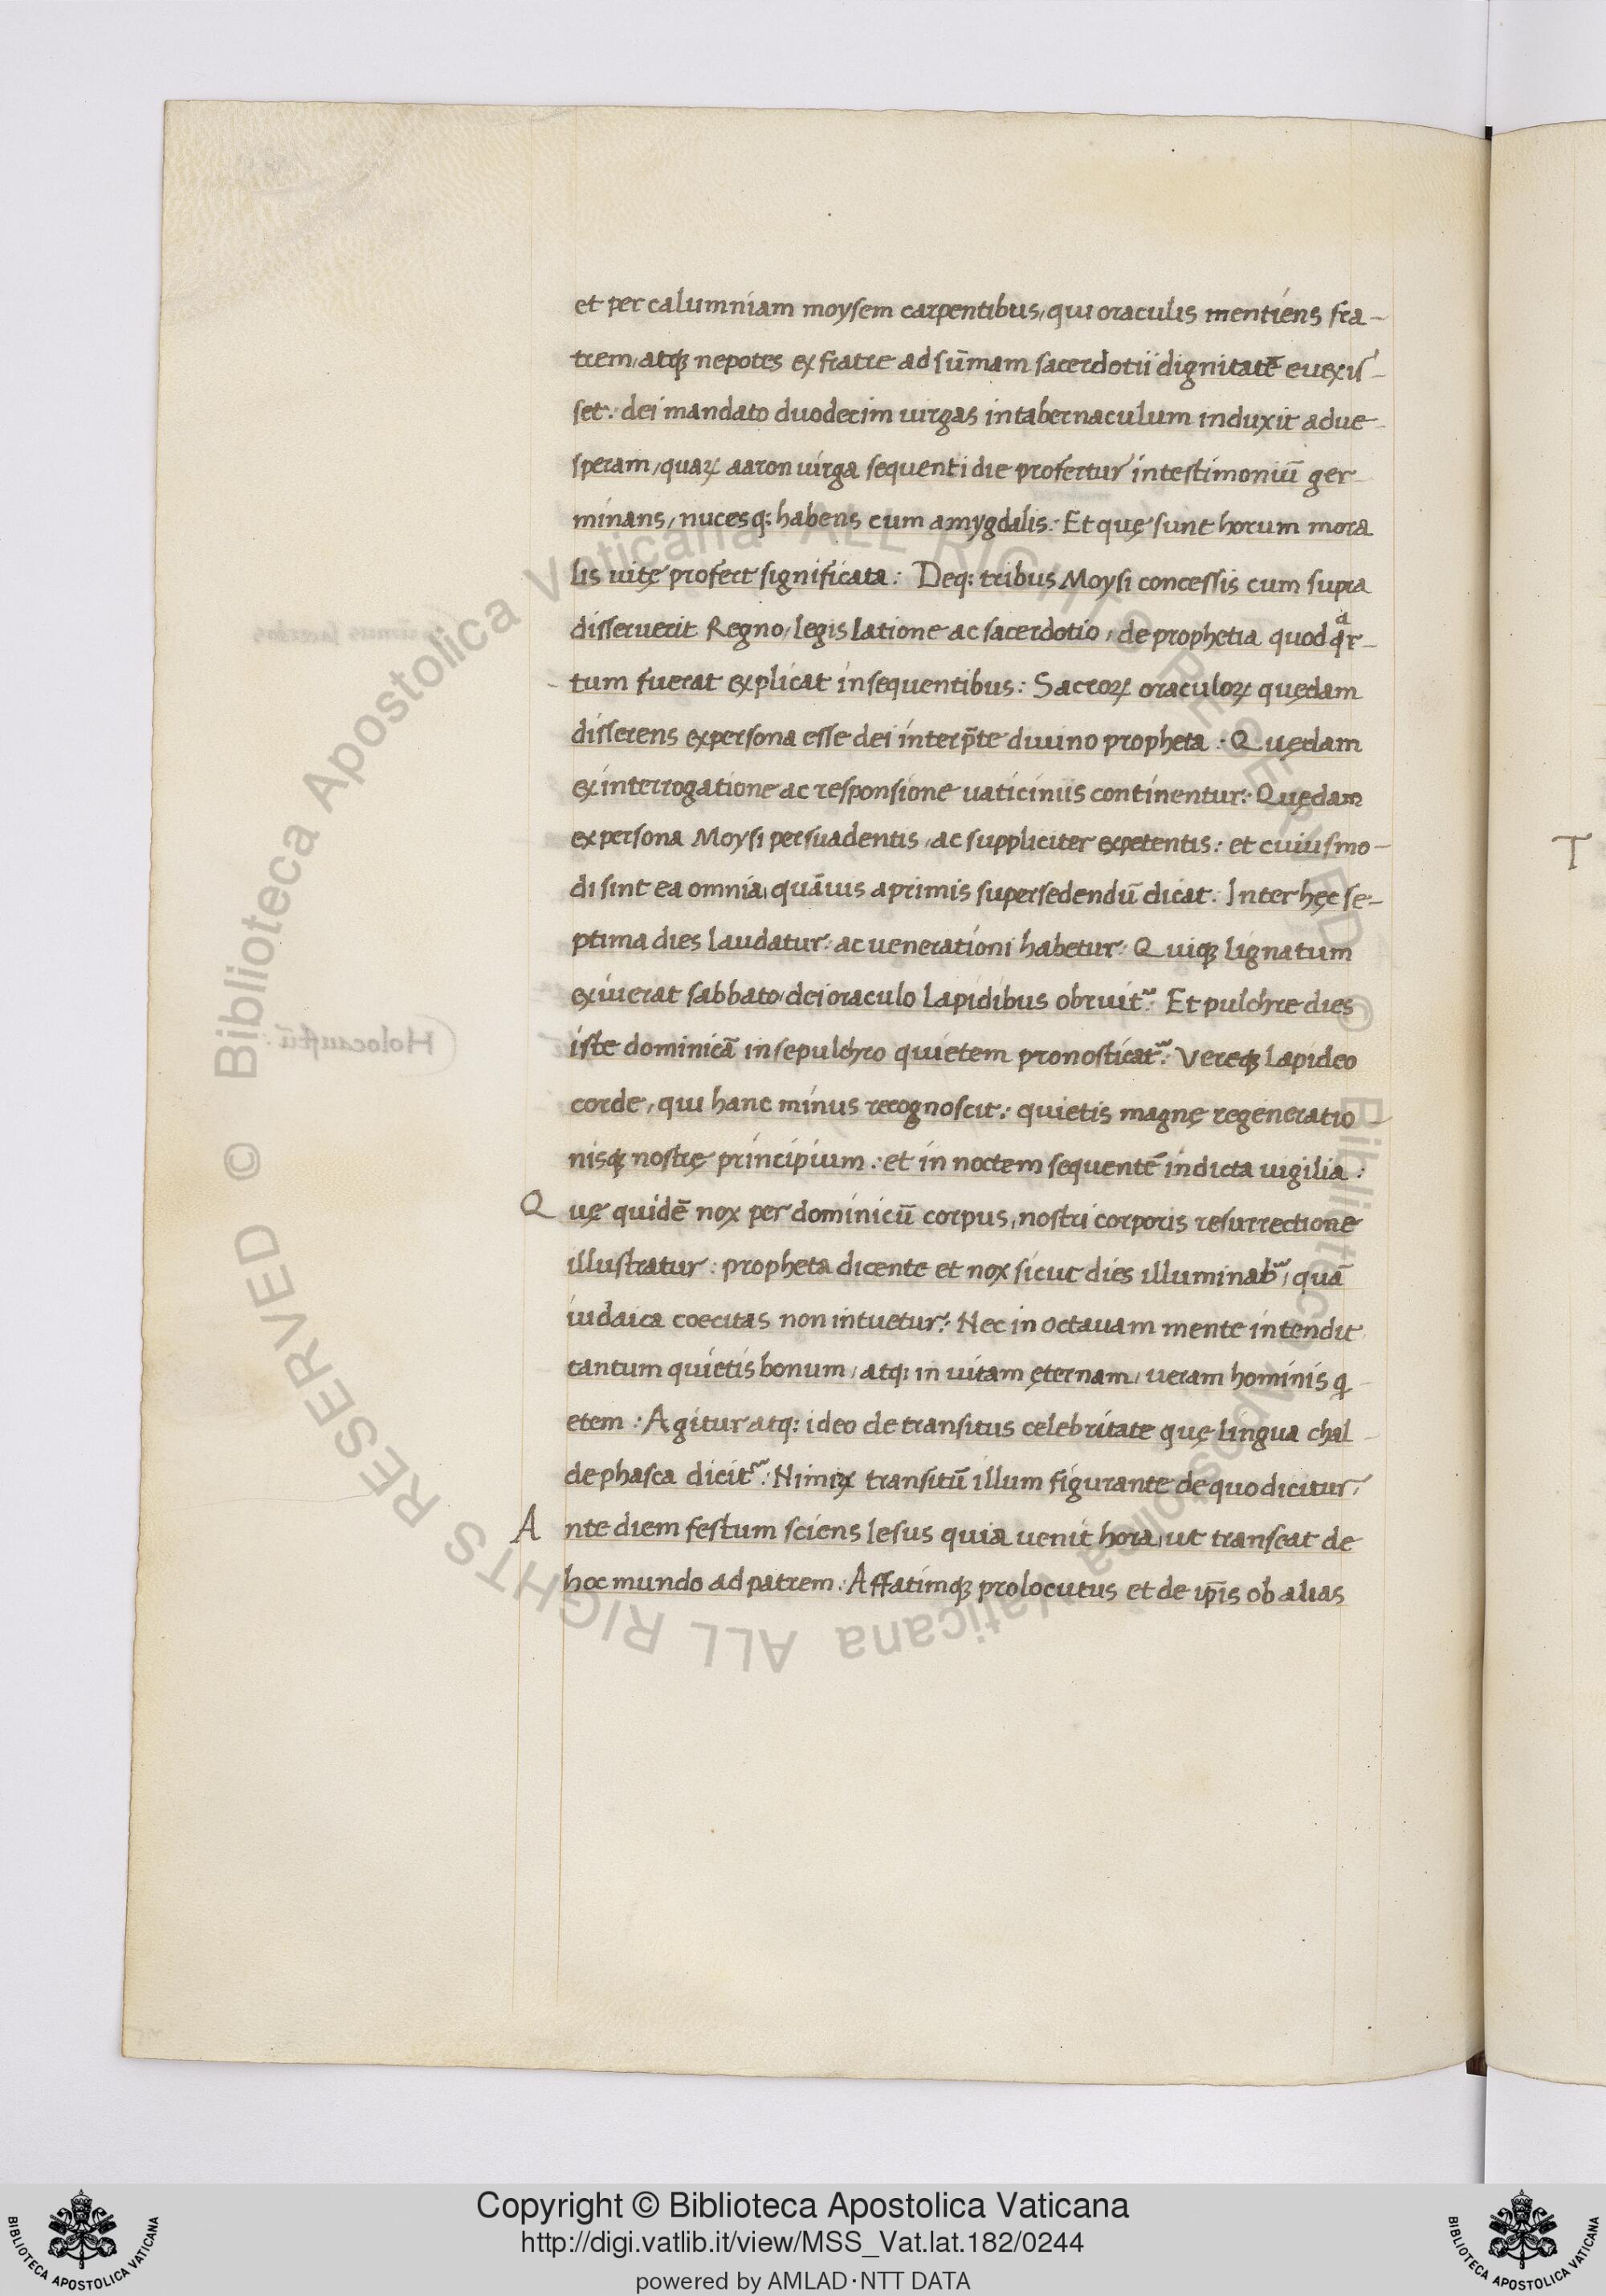 et per calumniam moysem carpentibus, qui oraculis mentiens fra-
trem, atqꝫ nepotes ex fratre ad sūmam sacerdotii dignitatē euexis-
set: dei mandato duodecim uirgas in tabernaculum induxit ad ue-
speram, quaꝝ aaron uirga sequenti die profertur in testimoniū ger-
minans, nucesq: habens cum amygdalis: Et quę sunt horum mora
lis uitę profert significata: Deq: tribus Moysi concessis cum supra
disseruerit Regno, legis latione ac sacerdotio, de prophetia quod qᵃr-
tum fuerat explicat in sequentibus: Sacroꝝ oraculoꝝ quędam
disserens ex persona esse dei interp̄te diuino propheta: Quędam
ex interrogatione ac responsione uaticiniis continentur: Quędam
ex persona Moysi persuadentis, ac suppliciter expetentis: et cuiusmo-
di sint ea omnia, quāuis a primis supersedendū dicat: Inter hęc se-
ptima dies laudatur: ac uenerationi habetur: Quiqꝫ lignatum
exiuerat sabbato, dei oraculo lapidibus obruit᷑: Et pulchre dies
iste dominicā in sepulchro quietem pronosticat᷑: Vereqꝫ lapideo
corde, qui hanc minus recognoscit: quietis magnę regeneratio-
nisqꝫ nostrę principium: et in noctem sequentē indicta uigilia:
Quę quidē nox per dominicū corpus, nostri corporis resurrectione
illustratur: propheta dicente et nox sicut dies illuminab᷑, quā
iudaica coecitas non intuetur: Nec in octauam mente intendit
tantum quietis bonum, atq: in uitam ęternam, ueram hominis q-
etem: Agitur atq: ideo de transitus celebritate quę lingua chal-
de phasca dicit᷑: Nimiꝝ transitū illum figurante de quo dicitur,
Ante diem festum sciens Iesus quia uenit hora, ut transeat de
hoc mundo ad patrem: Affatimqꝫ prolocutus et de ip̄is ob alias
Holocaustū
T
© Biblioteca Apostolica Vaticana ALL RIGHTS RESERVED © Biblioteca Apostolica Vaticana ALL RIGHTS RESERVED
Copyright © Biblioteca Apostolica Vaticana
http://digi.vatlib.it/view/MSS_Vat.lat.182/0244
powered by AMLAD·NTT DATA
BIBLIOTECA APOSTOLICA VATICANA
BIBLIOTECA APOSTOLICA VATICANA